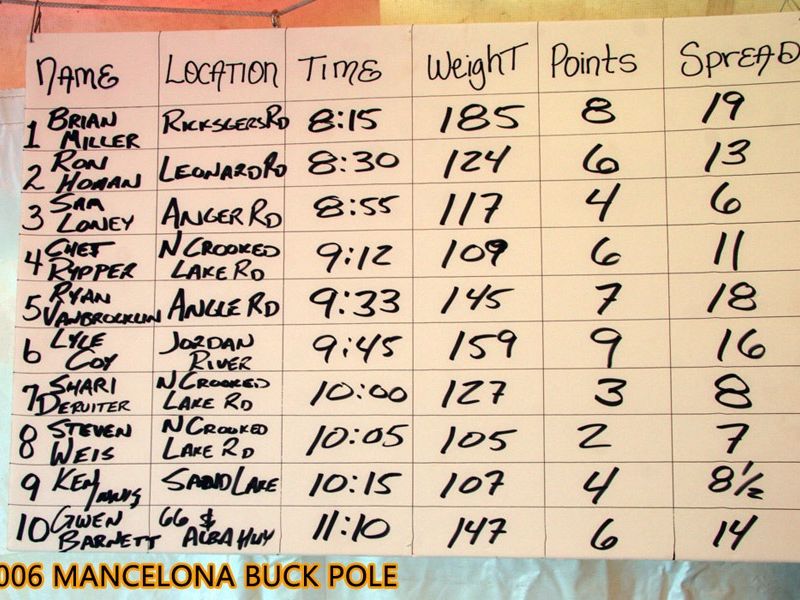 NAME LOCATION TIME WEIGHT POINTS SPREAD
1 BRIAN MILLER RICKSGERS RD 8:15 185 8 19
2 RON HOMAN LEONARD RD 8:30 124 6 13
3 SAM LONEY ANGER RD 8:55 117 4 6
4 CHET RYPPER N CROOKED LAKE RD 9:12 109 6 11
5 RYAN VANBROCKLIN ANGLE RD 9:33 145 7 18
6 LYLE COY JORDAN RIVER 9:45 159 9 16
7 SHARI DERUITER N CROOKED LAKE RD 10:00 127 3 8
8 STEVEN WEIS N CROOKED LAKE RD 10:05 105 2 7
9 KEN SAND LAKE 10:15 107 4 8½
10 GWEN BARNETT 66 & ALBA HWY 11:10 147 6 14
006 MANCELONA BUCK POLE